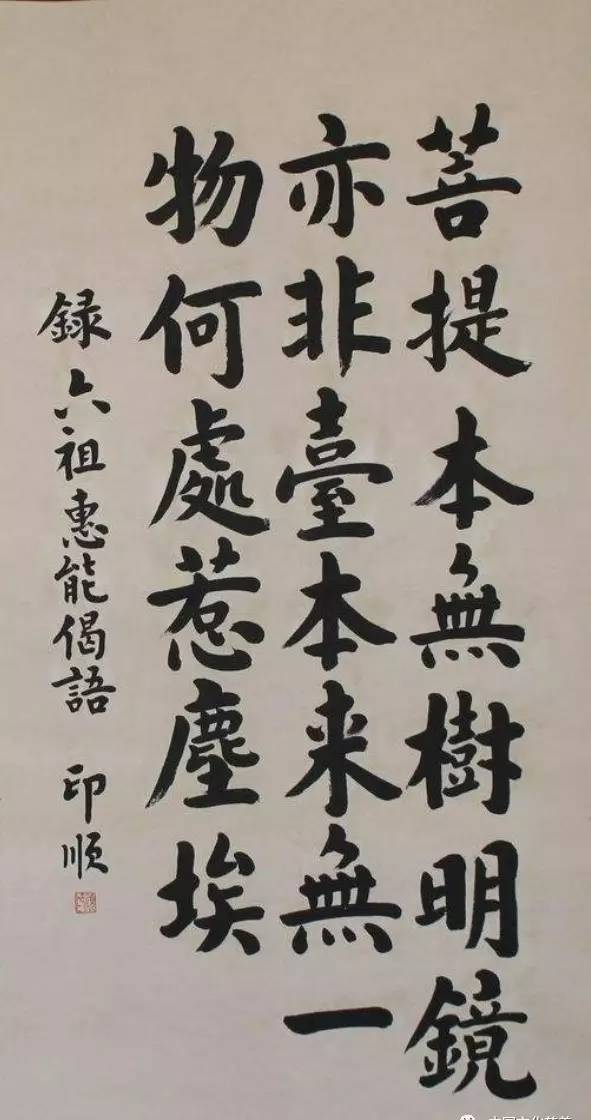 菩提本無樹明鏡
亦非臺本来無一
物何處惹塵埃
録六祖惠能偈語 印順